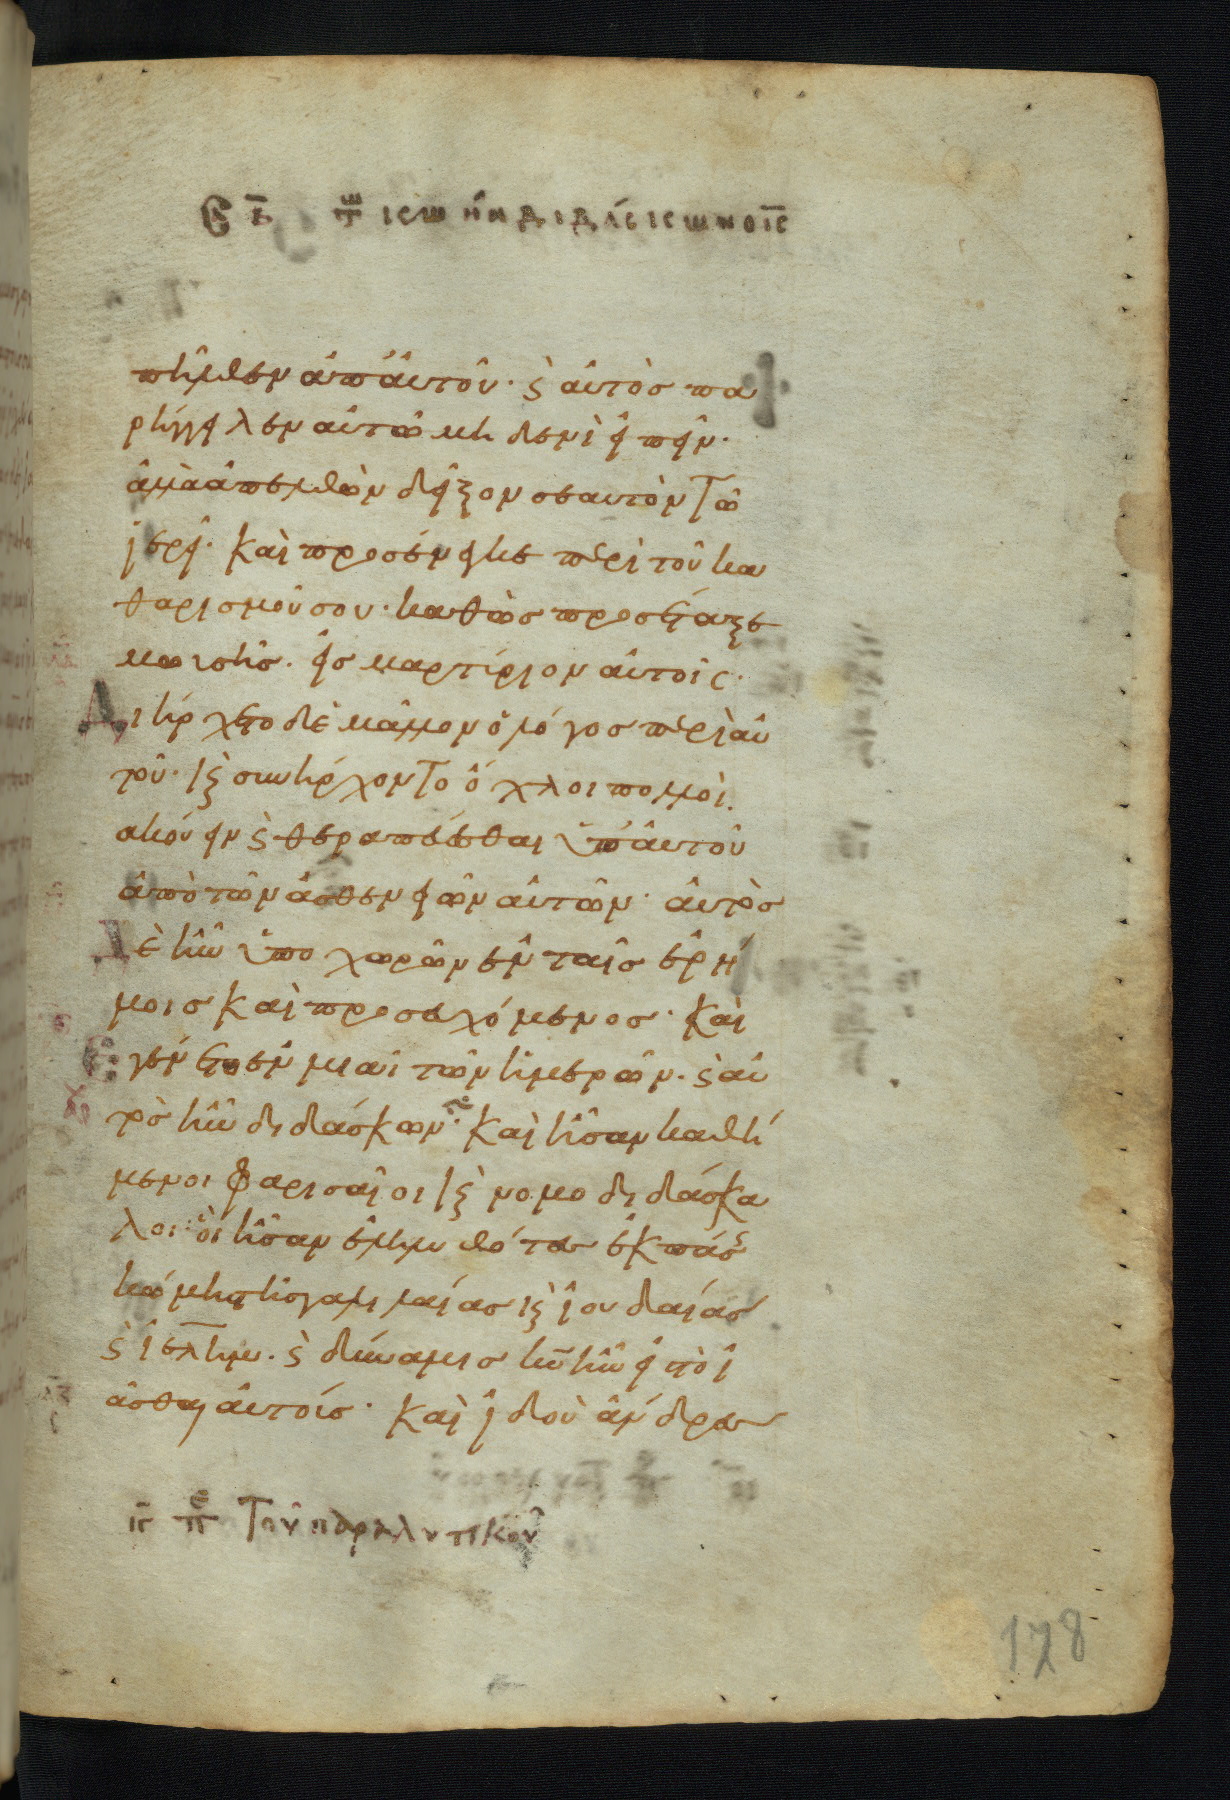 πῆλθεν ἀπ' ἀυτοῦ· ϛ ἀυτὸσ πα
ρήγγειλεν αὐτῶ μη δενὶ εἰπεῖν·
ἀλλὰ ἀπελθὼν δεῖξον σεαυτὸν τῶ
ἱερεῖ· καὶ προσένεικε περὶ τοῦ κα
θαρισμοῦ σου· καθὼσ προσέταξε
μωισῆσ· εἰσ μαρτίριον αὐτοῖς·
Διήρχετο δὲ μᾶλλον ὁ λόγοσ περὶ αὐ
τοῦ· ϗ συνήρχοντο ὄχλοι πολλοὶ·
ακούειν ϛ θεραπεύεσθαι ὑπ' ἀυτοῦ
ἀπὸ τῶν ἀσθενειῶν αὐτῶν· ἀυτὸσ
Δὲ ἦν ὑποχωρῶν ἐν ταῖσ ἐρή
μοισ καὶ προσευχόμενοσ· καὶ
Ἐγένετο ἐν μιαῖ τῶν ἡμερῶν· ϛ αὐ
τὸσ ἦν διδάσκων· καὶ ἦσαν καθή
μενοι φαρισαῖοι ϗ νομοδιδάσκα
λοι· ὁὶ ἦσαν ἐληλυθότεσ ἐκ πάσ
κώμησ τῆσ γαλιλαίασ ϗ ἰουδαίασ
ϛ ἰελημ· ϛ δύναμισ κυ ἦν εἰσ τὸ ἰ
ᾶσθαι ἀυτοίσ· καὶ ἰδοὺ ἄνδρεσ
ιγ πε Τοῦ παραλυτικοῦ
178